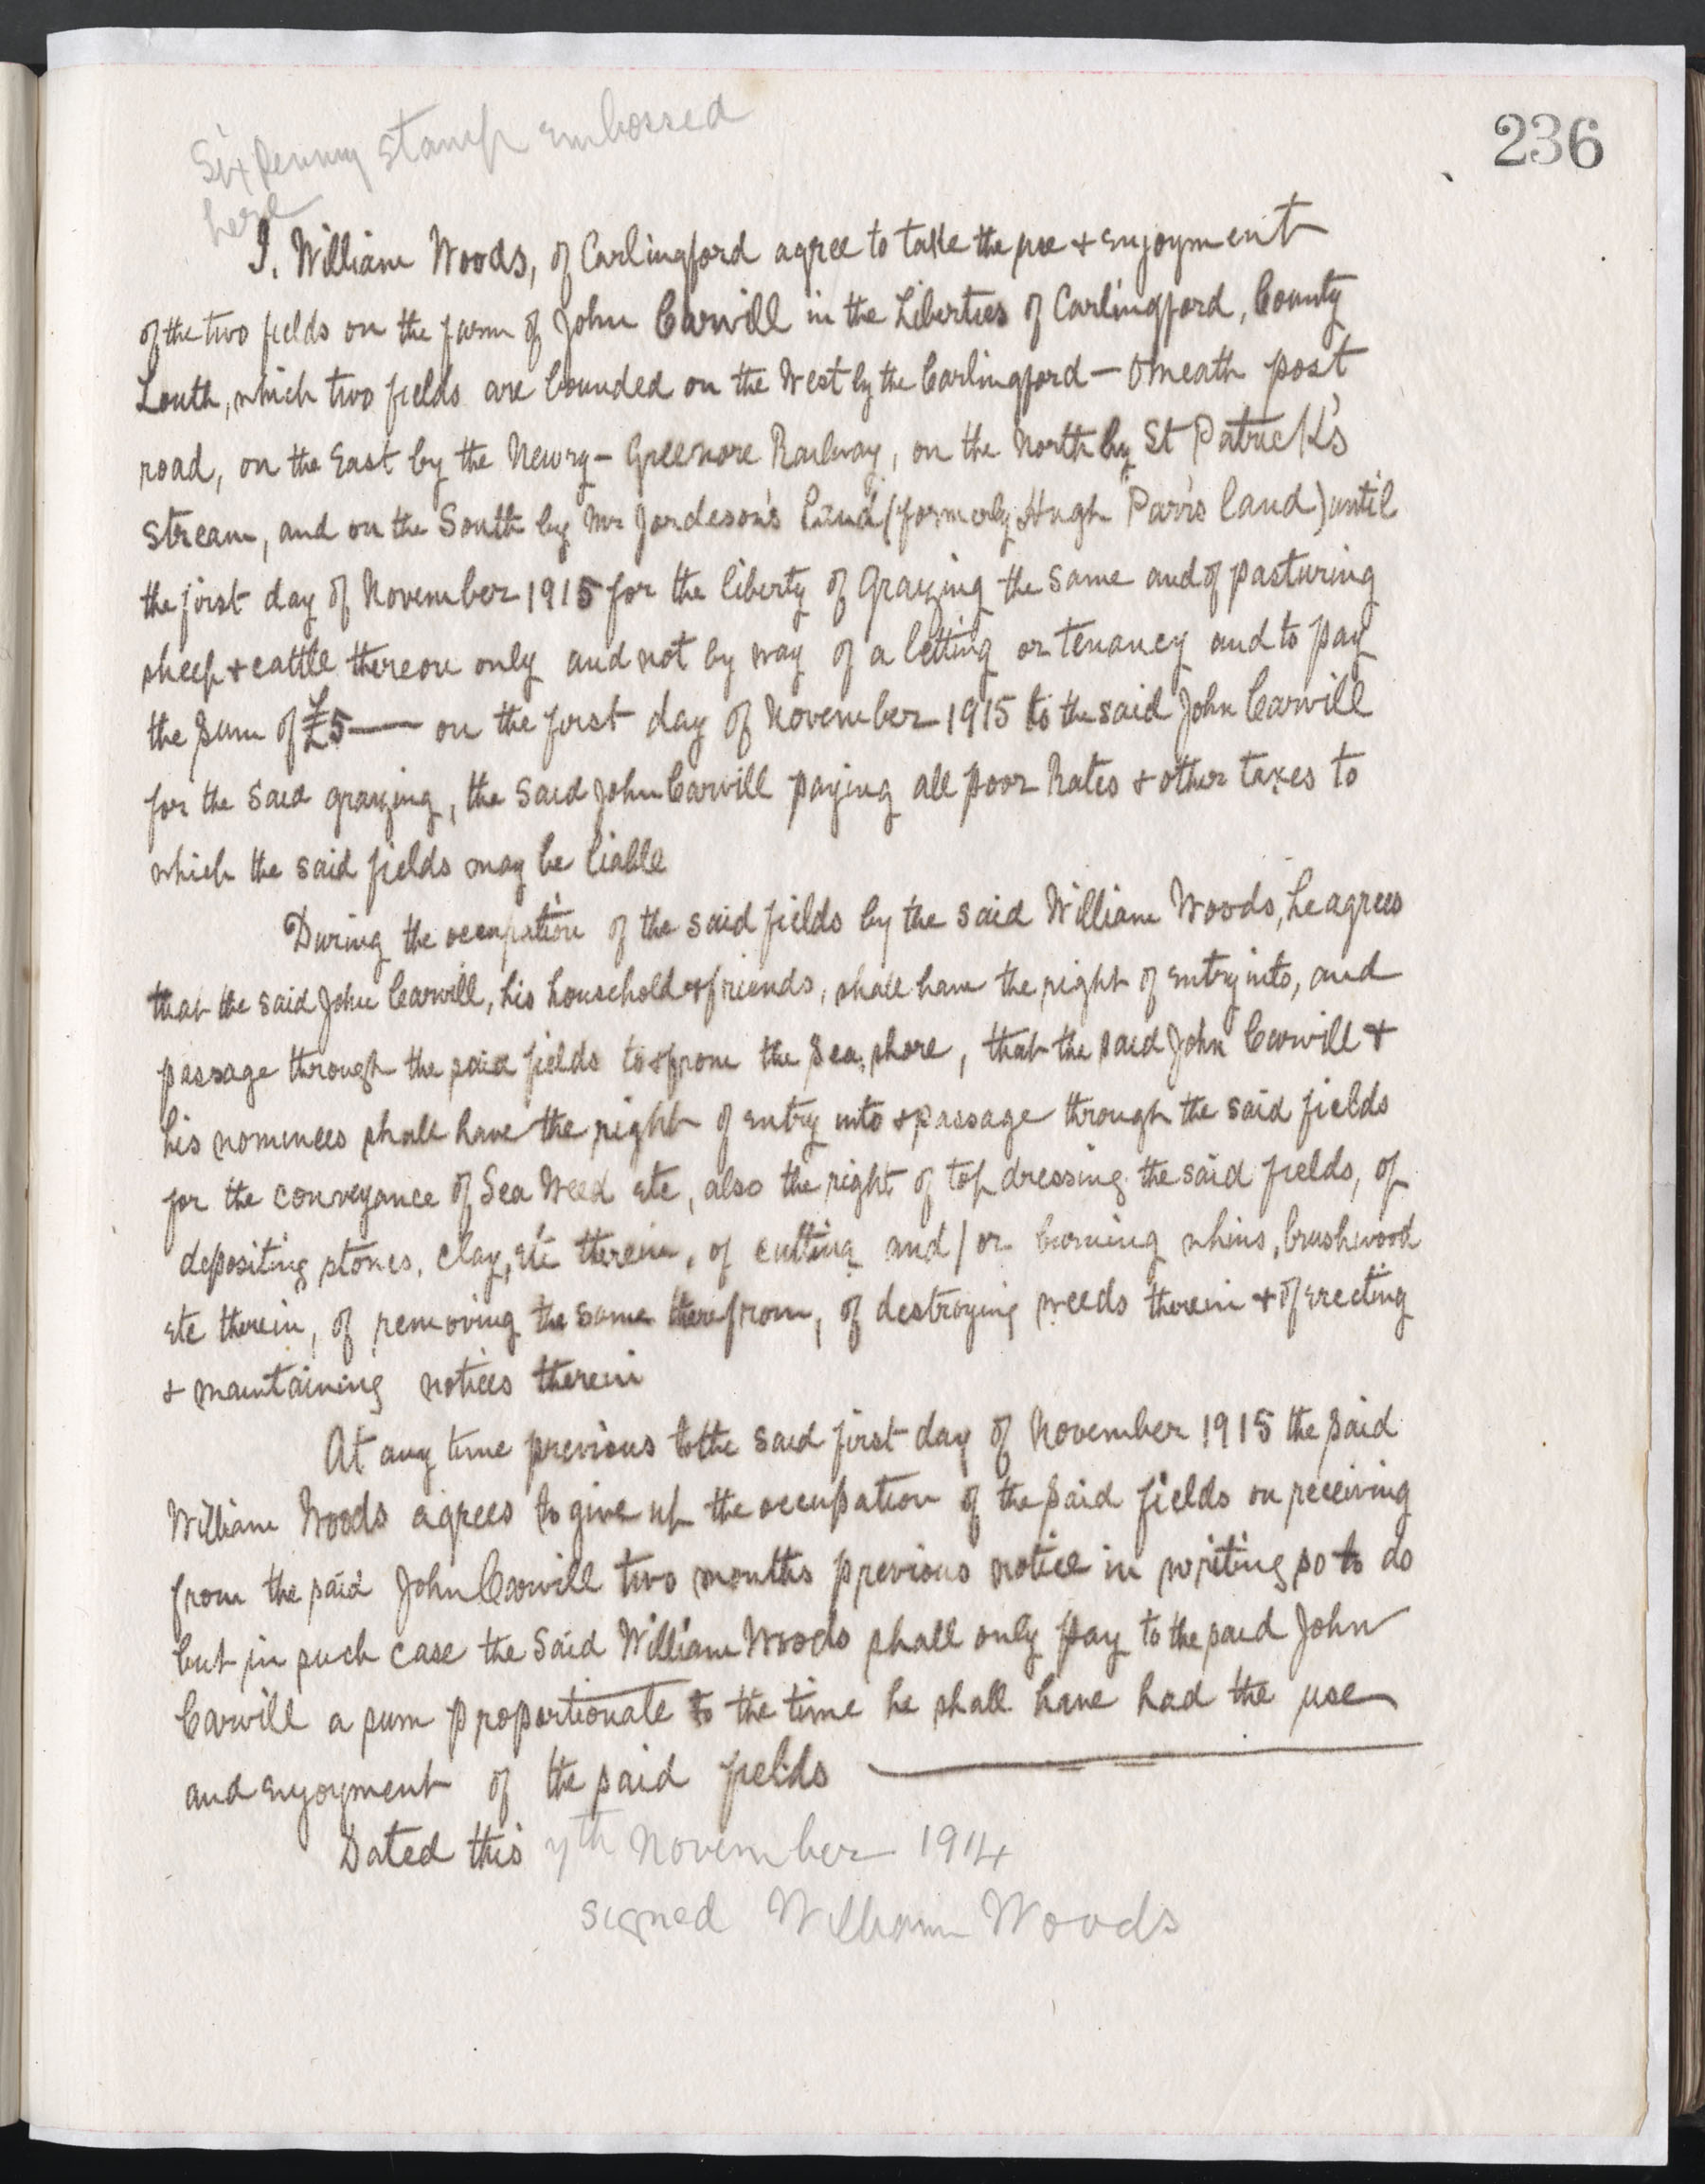 236
Six penny stamp embossed
here
I. William Woods, of Carlingford agree to take the use + enjoyment
of the two fields on the farm of John Carvill in the Liberties of Carlingford, County
Louth, which two fields are bounded on the West by the Carlingford – Omeath post
road, on the East by the Newry – Greenore Railway, on the North by St Patrick's
Stream, and on the South by Mr Jordeson's land (formerly Hugh Parr's land) until
the first day of November 1915 for the liberty of Grazing the same and of pasturing
sheep + cattle thereon only and not by way of a letting or tenancy and to pay
the sum of £5 — on the first day of November 1915 to the said John Carvill
for the said grazing, the said John Carvill paying all poor Rates + other taxes to
which the said fields may be liable
During the occupation of the said fields by the said William Woods, he agrees
that the said John Carvill, his household + friends, shall have the right of entry into, and
passage through the said fields to + from the Sea shore, that the said John Carvill +
his nominees shall have the right of entry into + passage through the said fields
for the conveyance of Sea Weed etc, also the right of top dressing the said fields, of
depositing stones, clay, etc therein, of cutting and/or burning whins, brushwood
etc therein, of removing the same therefrom, of destroying weeds therein + of erecting
+ maintaining notices therein
At any time previous to the said first day of November 1915 the said
William Woods agrees to give up the occupation of the said fields on receiving
from the said John Carvill two months previous notice in writing so to do
but in such case the said William Woods shall only pay to the said John
Carvill a sum proportionate to the time he shall have had the use
and enjoyment of the said fields —
Dated this 7th November 1914
signed William Woods